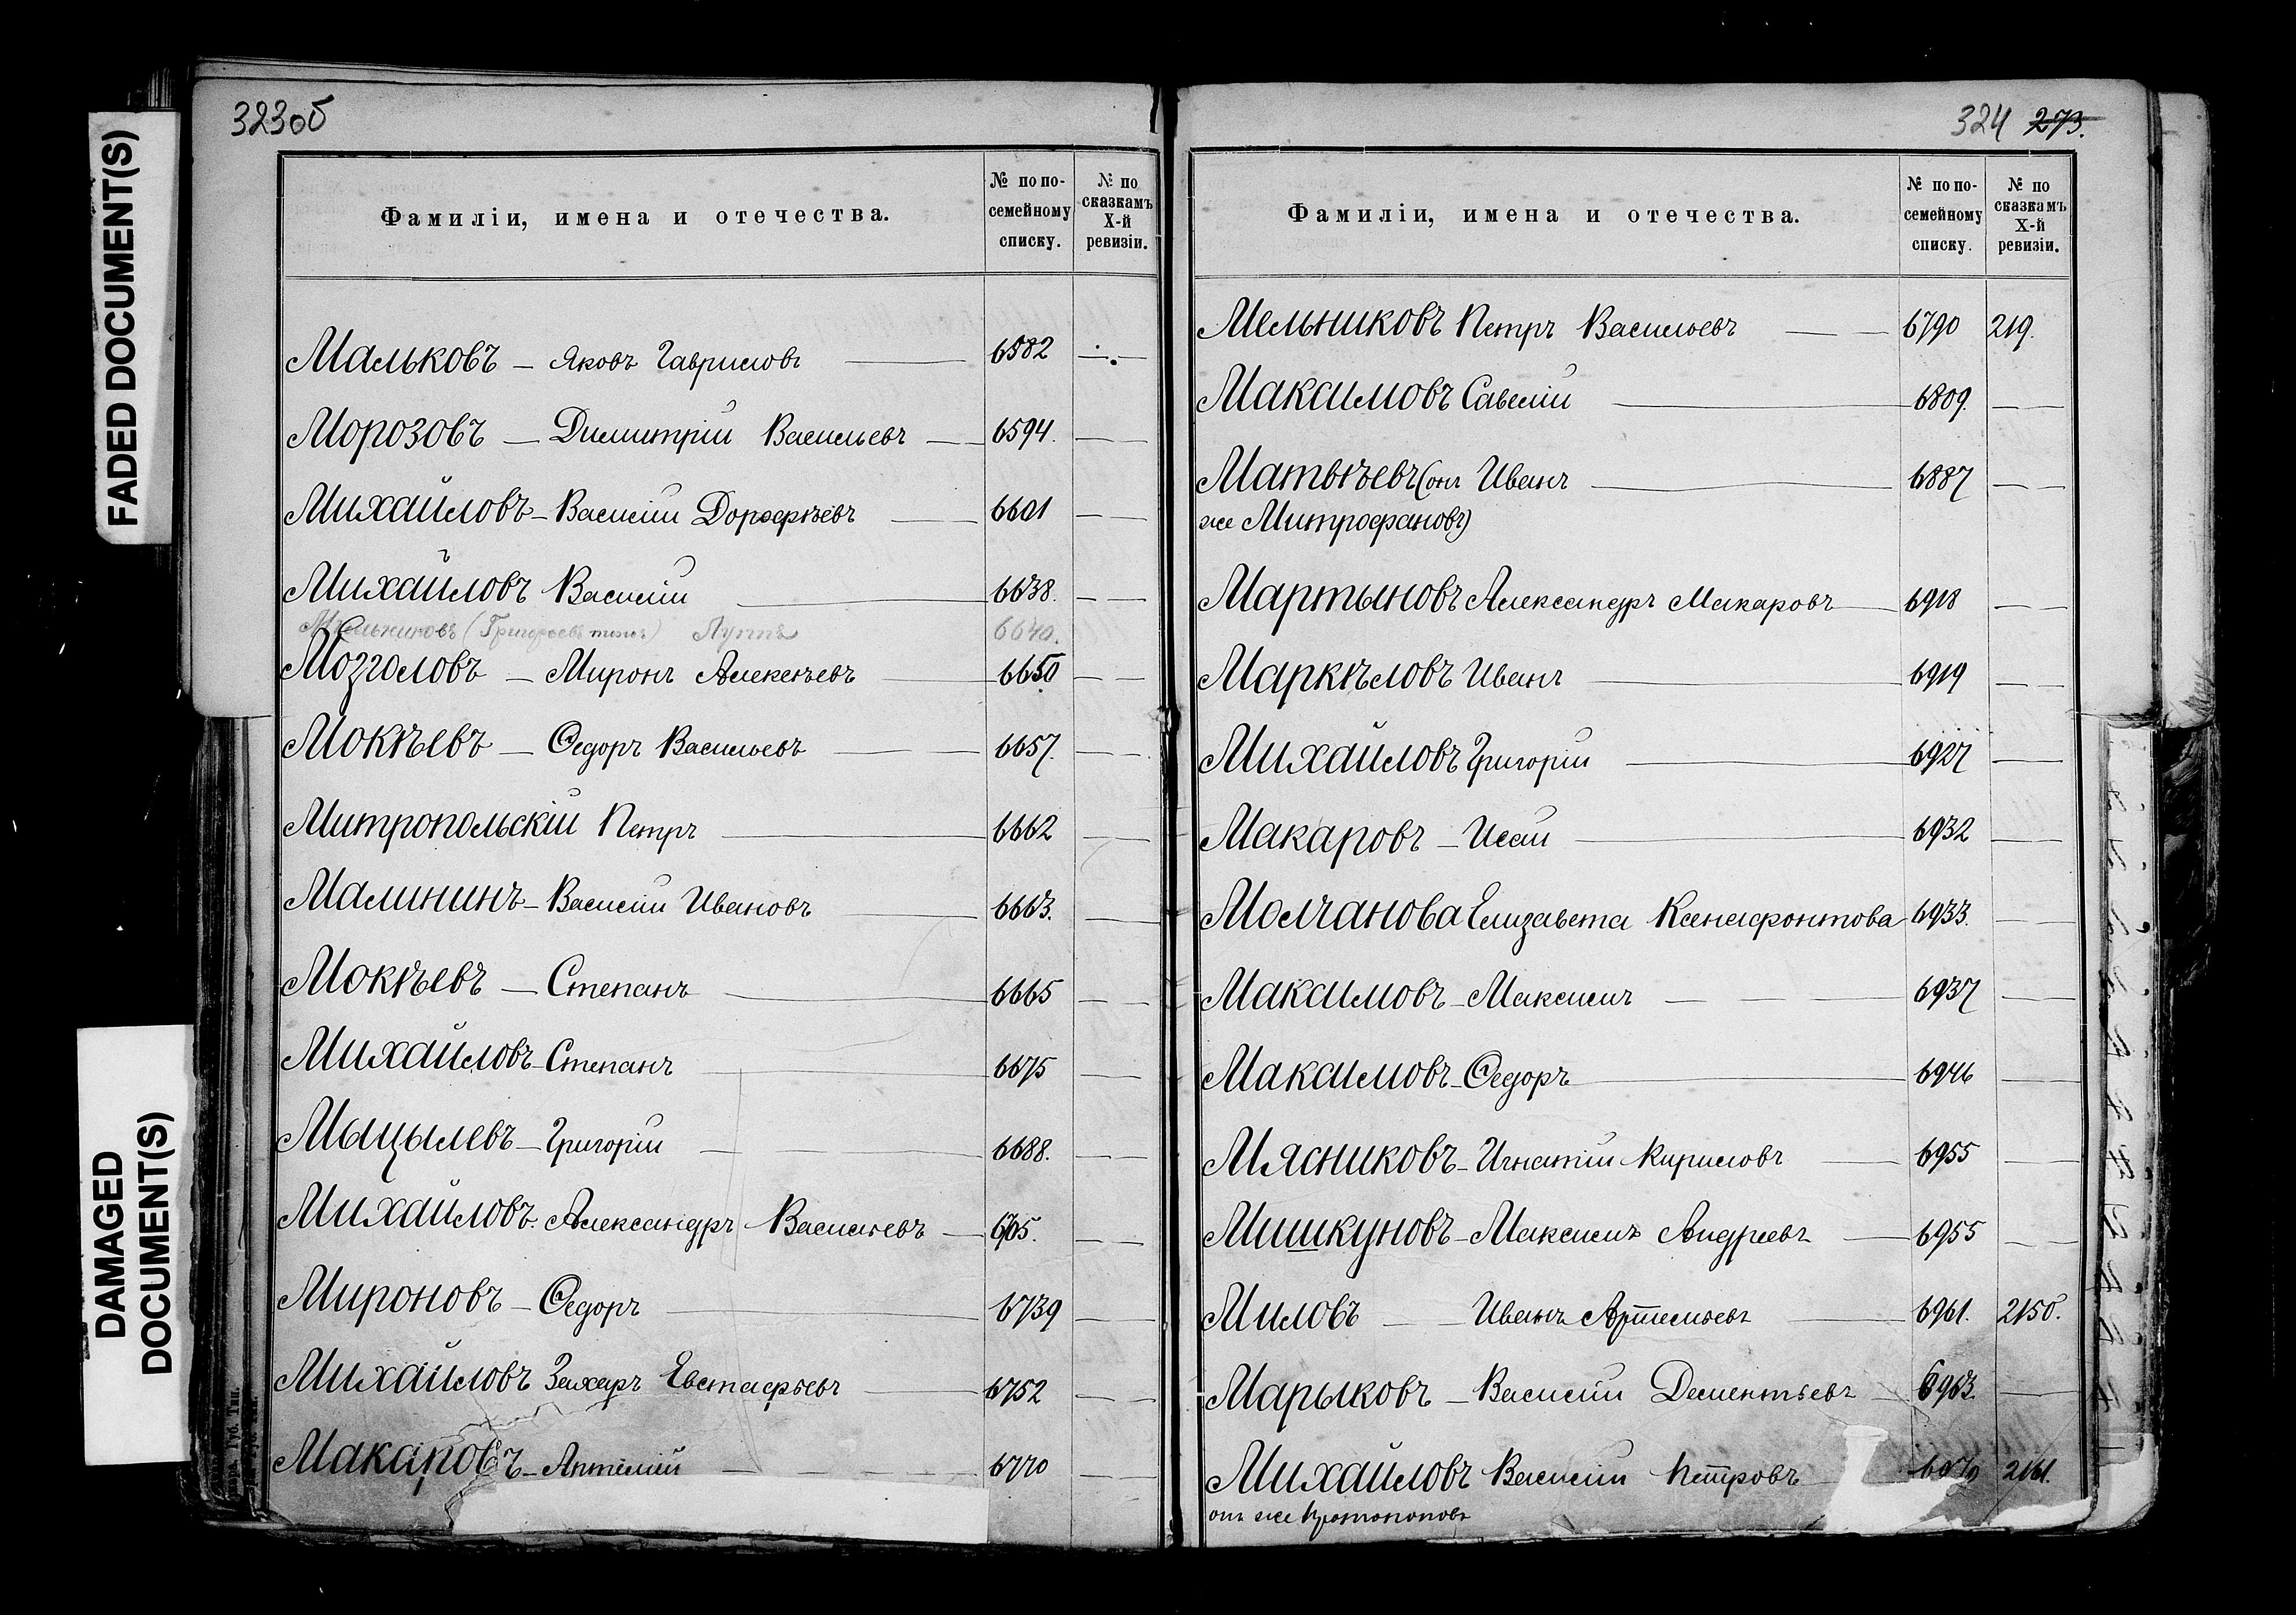 FADED DOCUMENT(S)
DAMAGED
DOCUMENT(S)
323об
Фамиліи, имена и отечества.
№ по по-
семейному
списку.
№ по
сказкамъ
X-й
ревизіи.
Мальковъ — Яковъ Гавриловъ — 6582 —
Морозовъ — Димитрій Васильевъ — 6594. —
Михайловъ — Василій Дорофѣевъ — 6601 —
Михайловъ Василій — 6638. —
Мельниковъ (Григорьевъ тожъ) Луппъ 6640.
Мозголовъ — Миронъ Алексѣевъ — 6650 —
Мокѣевъ — Ѳедоръ Васильевъ — 6657. —
Митропольскій Петръ — 6662 —
Малининъ — Василій Ивановъ — 6663. —
Мокѣевъ — Степанъ — 6665 —
Михайловъ — Степанъ — 6675 —
Мыцылевъ — Григорій — 6688. —
Михайловъ. Александръ Васильевъ — 6705. —
Мироновъ — Ѳедоръ — 6739 —
Михайловъ Захаръ Евстафьевъ — 6752 —
Макаровъ — Антипій — 6770 —
324 273.
Фамиліи, имена и отечества.
№ по по-
семейному
списку.
№ по
сказкамъ
X-й
ревизіи.
Мельниковъ Петръ Васильевъ — 6790 219.
Максимовъ Савелій — 6809. —
Матвѣевъ (онъ Иванъ — 6887 —
же Митрофановъ)
Мартыновъ Александръ Макаровъ — 6918 —
Маркѣловъ Иванъ — 6919 —
Михайловъ Григорій — 6927 —
Макаровъ — Исай — 6932 —
Молчанова Елизавета Ксенофонтова 6933. —
Максимовъ — Максимъ — 6937 —
Максимовъ — Ѳедоръ — 6946 —
Мясниковъ — Игнатій Кириловъ — 6955 —
Мишкуновъ — Максимъ Андреевъ — 6955 —
Миловъ — Иванъ Артемьевъ — 6961. 2150.
Марыковъ — Василій Дементьевъ — 6963. —
Михайловъ Василій Петровъ 2161.
онъ же Протопоповъ